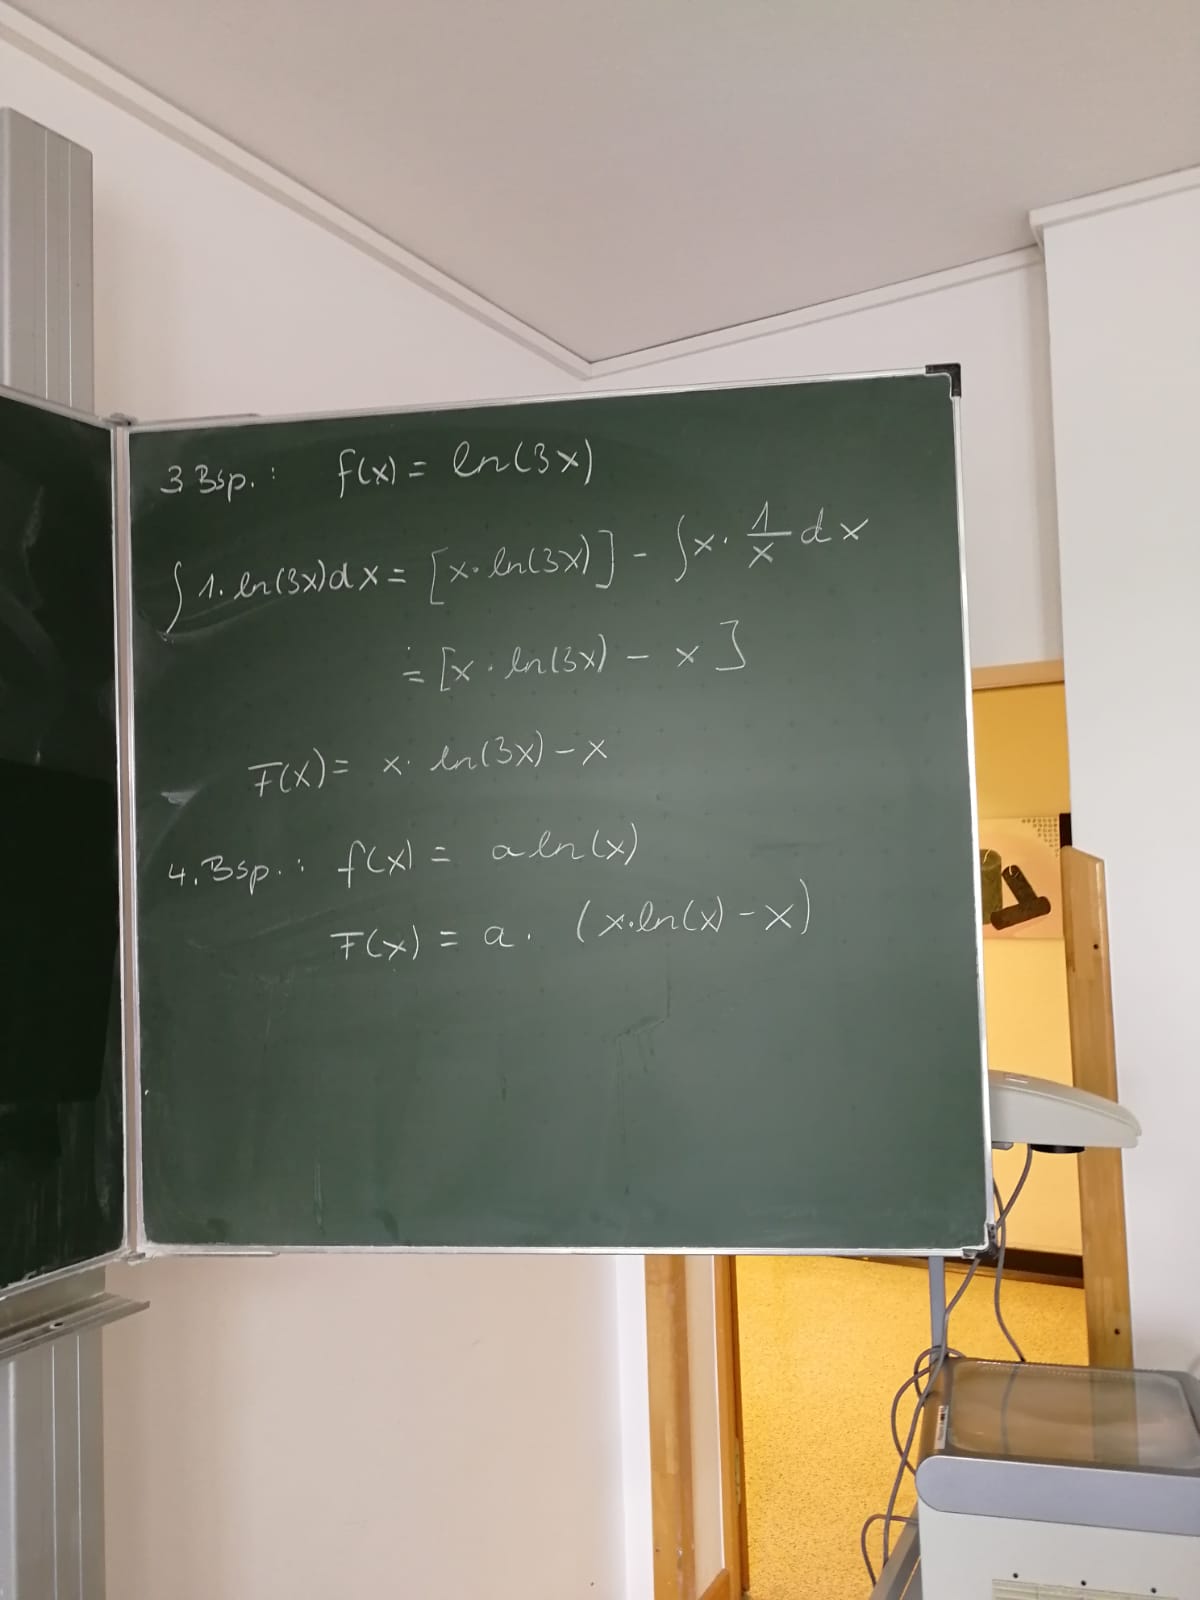 3 Bsp.: f(x) = ln(3x)
∫ 1. ln(3x)dx = [x · ln(3x)] - ∫ x · 1/x dx
= [x · ln(3x) - x]
F(x) = x · ln(3x) - x
4. Bsp.: f(x) = a ln(x)
F(x) = a · (x·ln(x) - x)